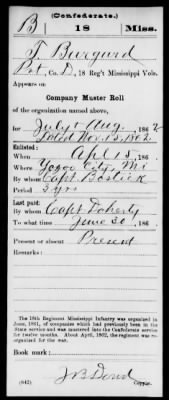 (Confederate.)
B 18 Miss.
T Burgard
Pvt, Co. D, 18 Reg't Mississippi Vols.
Appears on
Company Muster Roll
of the organization named above,
for July & Aug, 1862
Dated Nov. 13, 1862
Enlisted:
When April 15, 186
Where Yazoo City, Mi
By whom Capt. Bostick
Period 3 yrs
Last paid:
By whom Capt Doherty
To what time June 30, 186
Present or absent Present
Remarks:
The 18th Regiment Mississippi Infantry was organized in
June, 1861, of companies which had previously been in the
State service and was mustered into the Confederate service
for twelve months. About April, 1862, the regiment was re-
organized for the war.
Book mark:
J B Dowd
(642) Copyist.